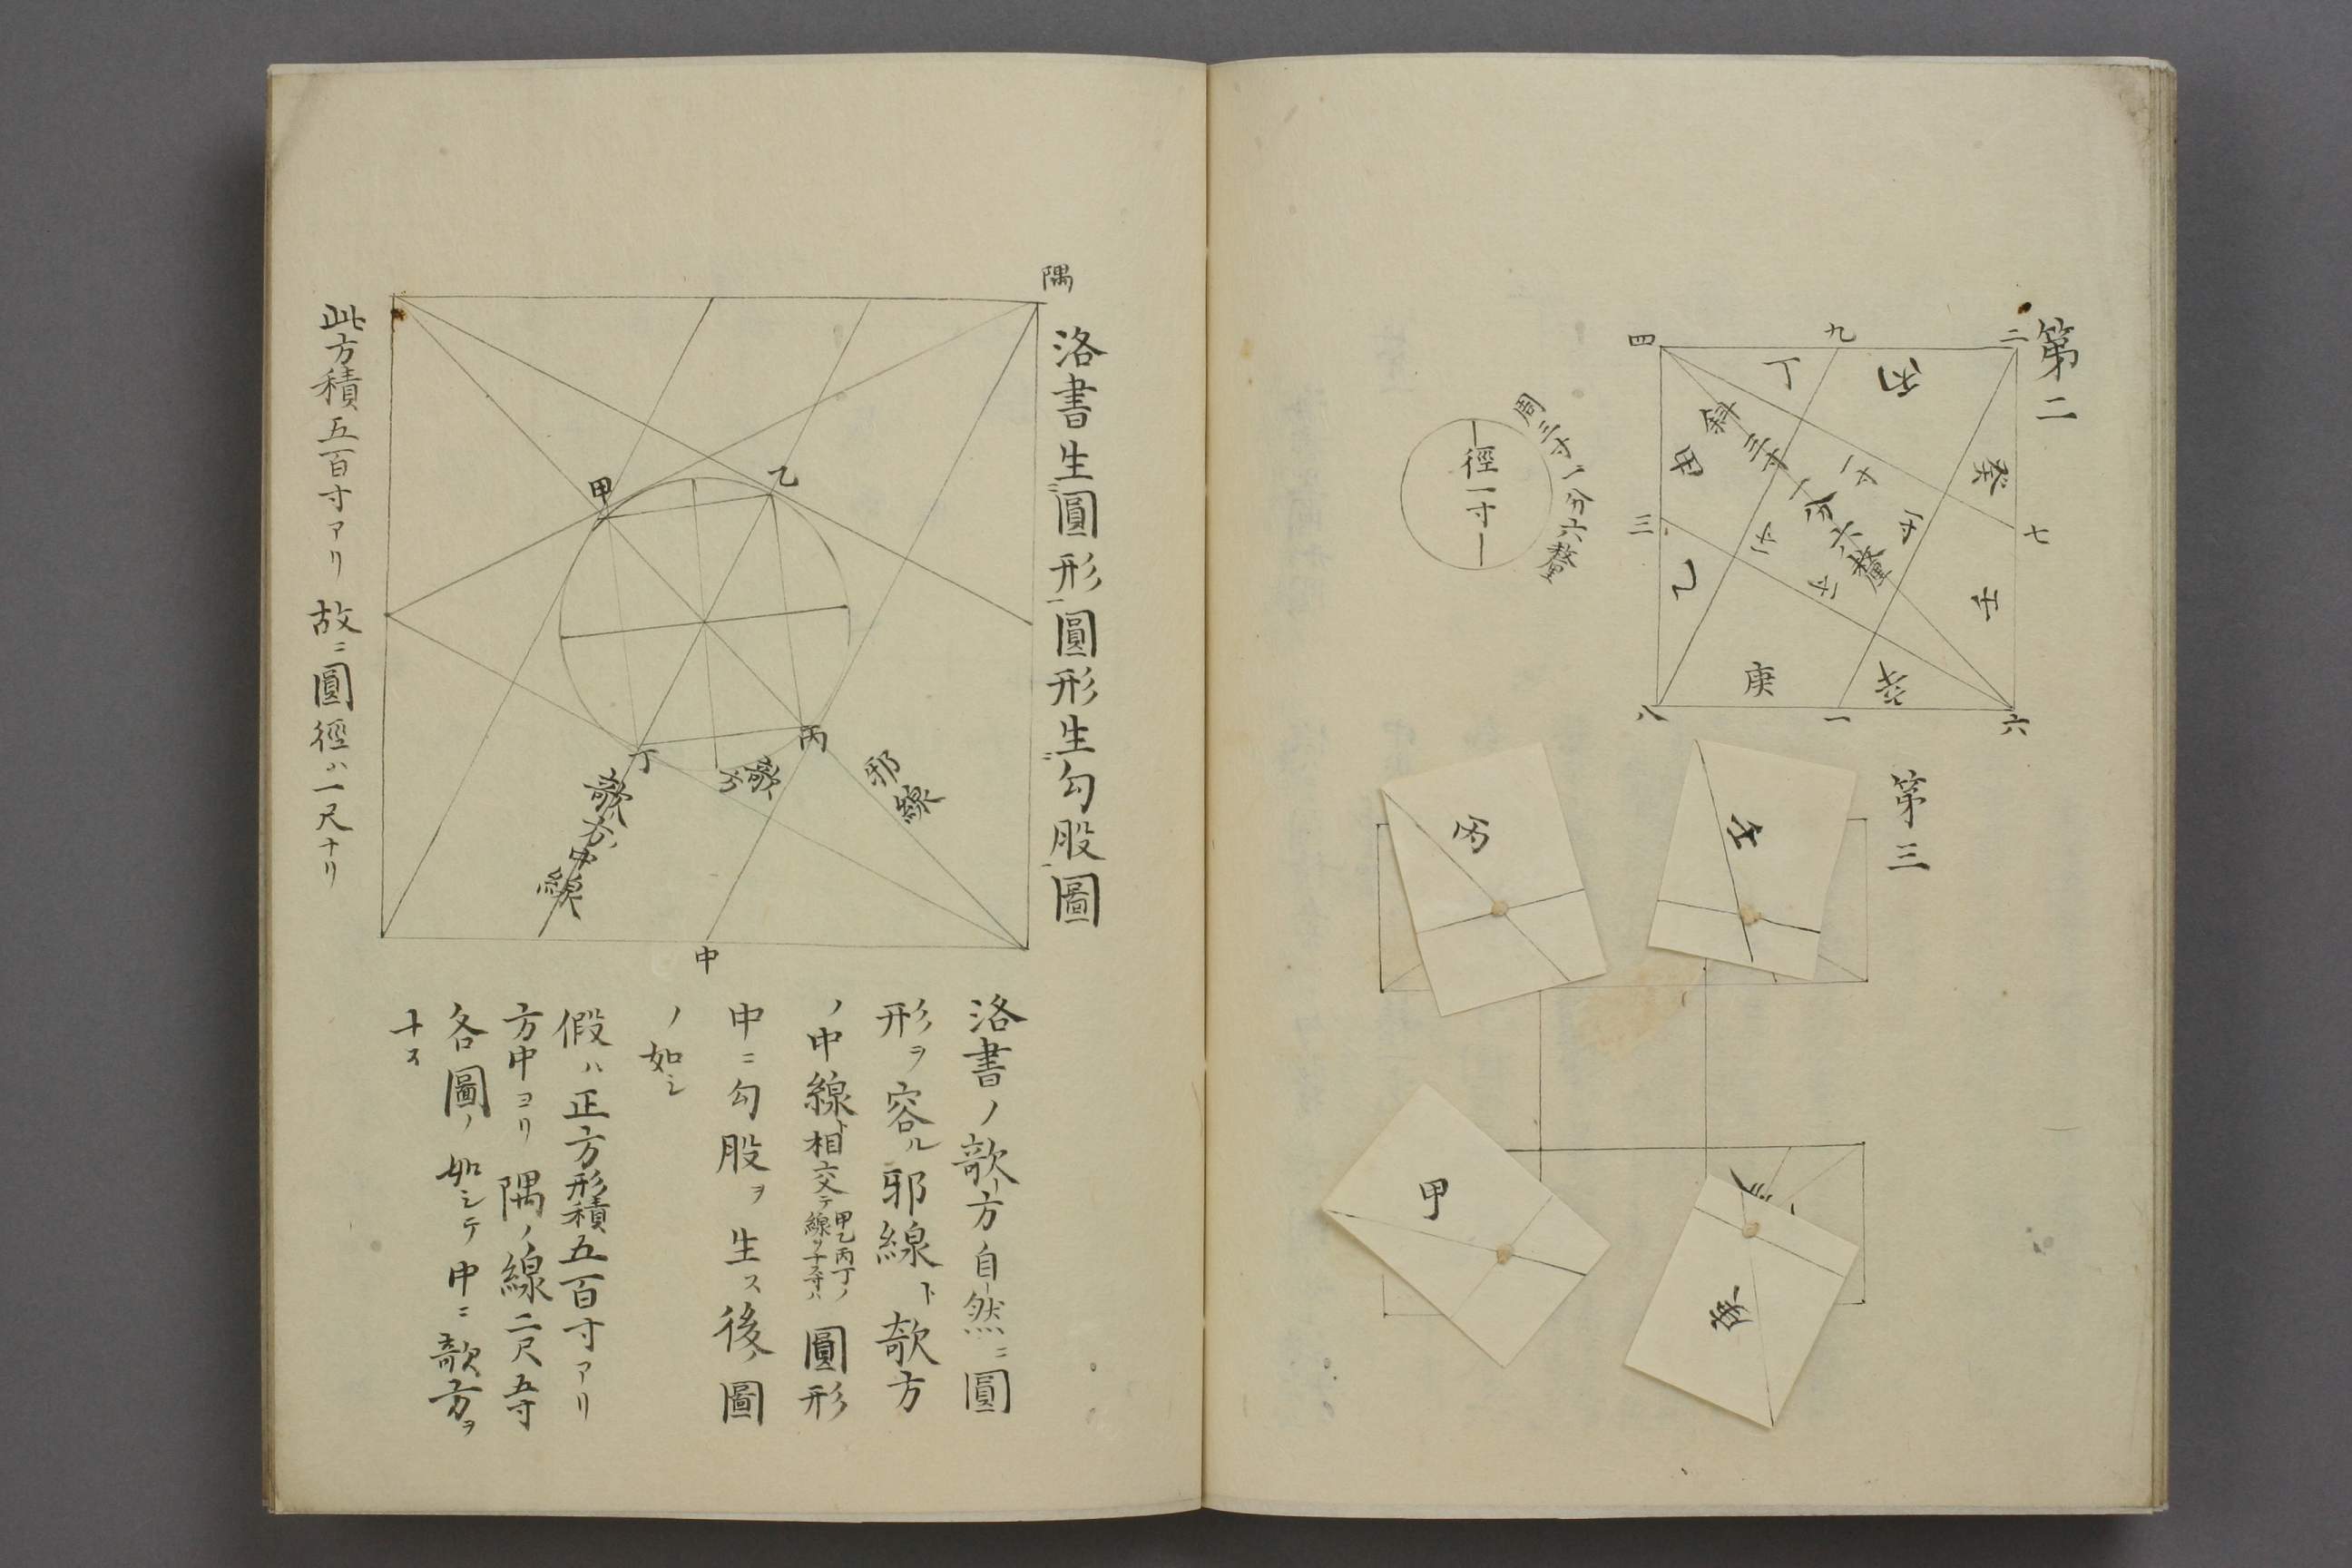 第二
二
九
四
丙
丁
癸
七
壬
斜三寸一分六釐
一寸
一寸
一寸
一寸
甲
三
乙
庚
辛
八
一
六
周三寸一分六釐
徑一寸
第三
壬
丙
庚
甲
洛書生圓形圓形生勾股圖
隅
乙
甲
丙
丁
邪線
欹方
欹方中線
中
此方積五百寸アリ故ニ圓徑ハ一尺ナリ
洛書ノ欹方自然ニ圓
形ヲ容ル邪線ト欹方
ノ中線ト相交テ甲乙丙丁ノ線ヲナス寸ハ圓形
中ニ勾股ヲ生ス後ノ圖
ノ如シ
假ハ正方形積五百寸アリ
方中ヨリ隅ノ線二尺五寸
各圖ノ如シテ中ニ欹方ヲ
ナス